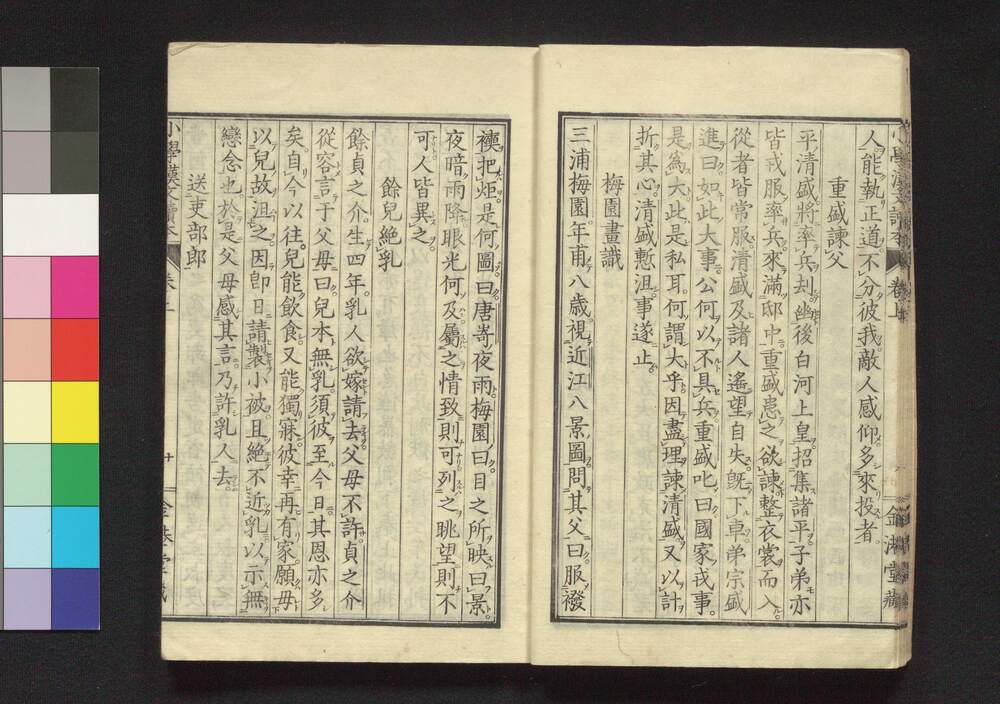 小學漢文讀本 卷上
人能執正道不分彼我敵人感仰多來投者
重盛諫父
平清盛將率兵刦幽後白河上皇招集諸平子弟亦
皆戎服率兵來滿邸中重盛患之欲諫整衣裳而入
從者皆常服清盛及諸人遙望自失旣下車弟宗盛
進曰如此大事公何以不具兵重盛叱曰國家戎事
是爲大此是私耳何謂大乎因盡理諫清盛又以計
折其心清盛慙沮事遂止
梅園畫識
三浦梅園年甫八歲視近江八景圖問其父曰服襏
襖把炬是何圖曰唐崎夜雨梅園曰目之所映曰景
夜暗雨降眼光何及屬之情致則可列之眺望則不
可人皆異之
餘兒絕乳
餘貞之介生四年乳人欲嫁請去父母不許貞之介
從容言于父母曰兒本無乳須彼至今日其恩亦多
矣自今以往兒能飲食又能獨寐彼幸再有家願毋
以兒故沮之因卽日請製小被且絕不近乳以示無
戀念也於是父母感其言乃許乳人去
送吏部郎
小學漢文讀本